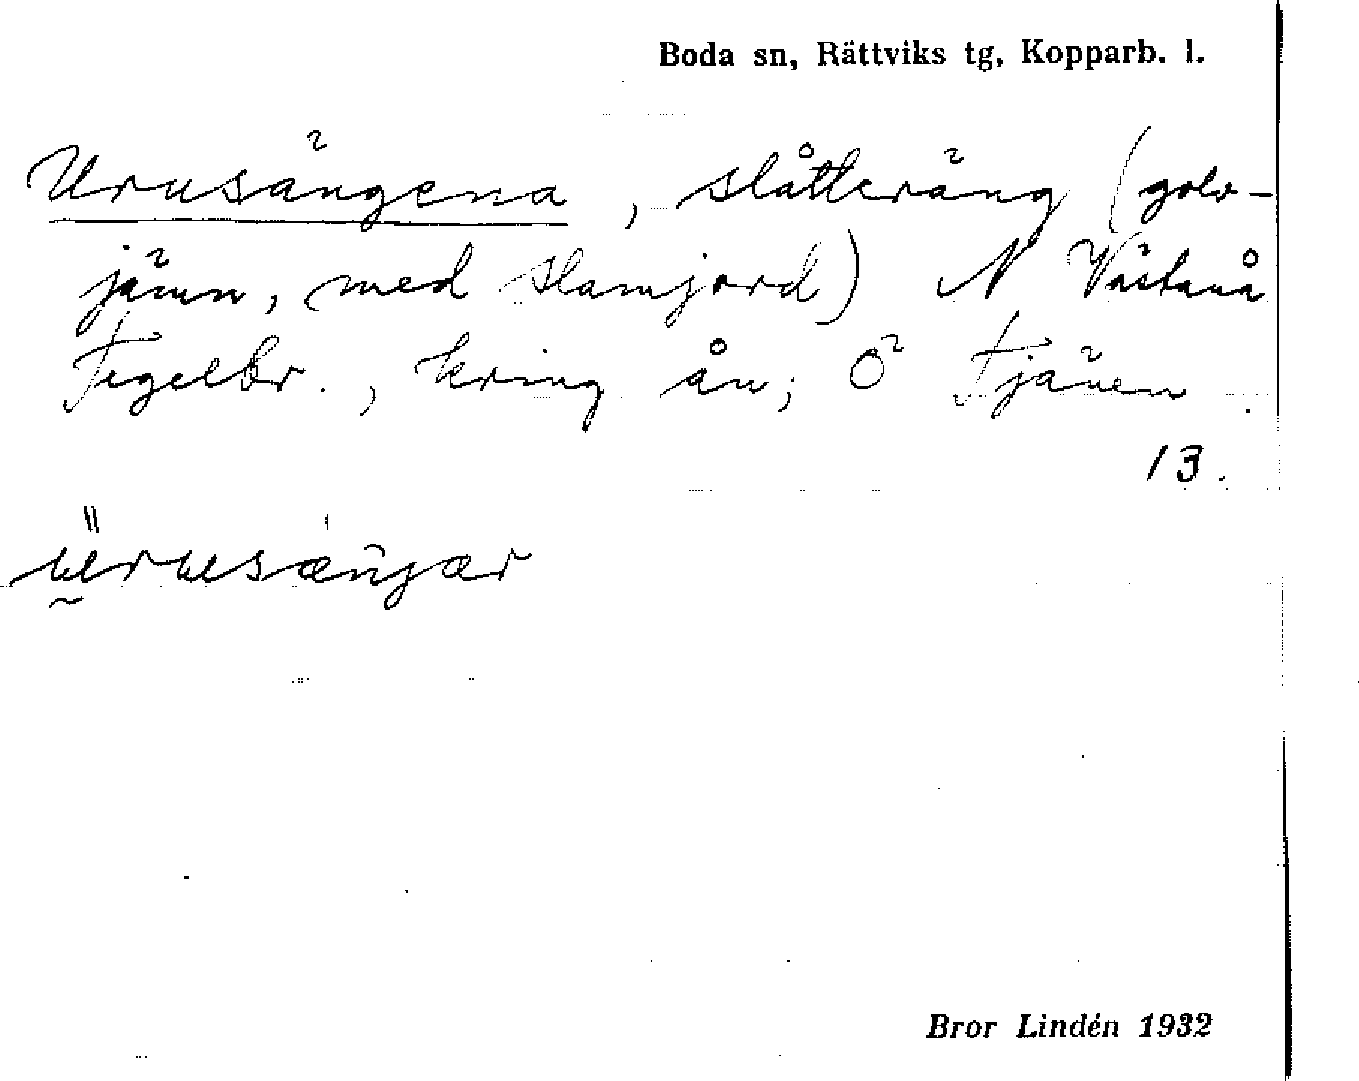 Boda sn, Rättviks tg, Kopparb. l.
Urusängena, slåtteräng (golv-
jämn, med slamjord) N Västanå
Tegelbr., kring ån; Ö Tjären.
13.
Bror Lindén 1932